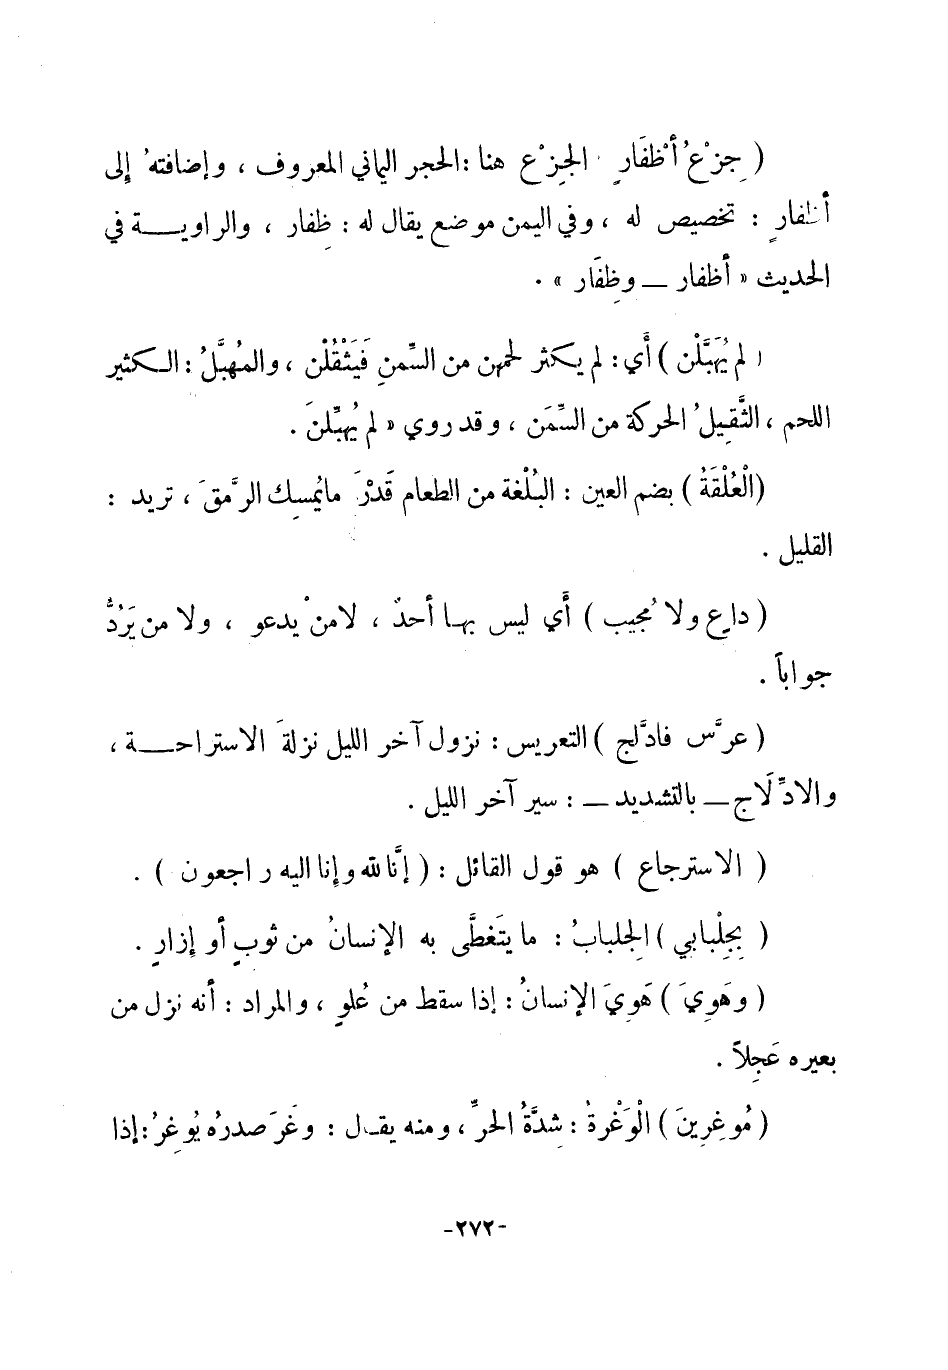 ( جِزْعُ أظْفَارٍ الجِزْع هنا : الحجر اليماني المعروف ، وإضافتهُ إلى
أظفارٍ : تخصيص له ، وفي اليمن موضع يقال له : ظِفار ، والراويــة في
الحديث « أظفار ــ وظِفَار » .
( لم يُهَبَّلْن ) أَي : لم يكثر لحمهن من السِّمنِ فَيَثْقُلْن ، والمُهبَّلُ : الــكثير
اللحم ، الثَّقِيلُ الحركة من السِّمَن ، وقد روي « لم يُهبِّلنَ .
(الْعُلْقَةُ ) بضم العين : البُلْغة من الطعام قَدْرَ مايُمسِك الرَّمقَ ، تريد :
القليل .
( داعٍ ولا مُجيب ) أَي ليس بهـا أحدٌ ، لامنْ يدعو ، ولا من يَرُدُّ
جواباً .
( عرَّس فادَّلج ) التعريس : نزول آخر الليل نزلةَ الاستراحــة ،
والادِّلَاج ــ بالتشديد ــ : سير آخر الليل .
( الاسترجاع ) هو قول القائل : ( إنَّا لله وإنا اليه راجعون ) .
( بِجِلْبابي ) الجِلبابُ : ما يتَغطَّى به الإنسانُ من ثوبٍ أو إزارٍ .
( وهَوِيَ ) هَوِيَ الإنسانُ : إذا سقط من عُلوٍ ، والمراد : أنه نزل من
بعيره عَجِلاً .
( مُوغِرِينَ ) الْوَغْرةُ : شِدَّةُ الحرِّ ، ومنه يقـال : وغَرَ صدرُه يُوغِرُ : إذا
-٢٧٢-